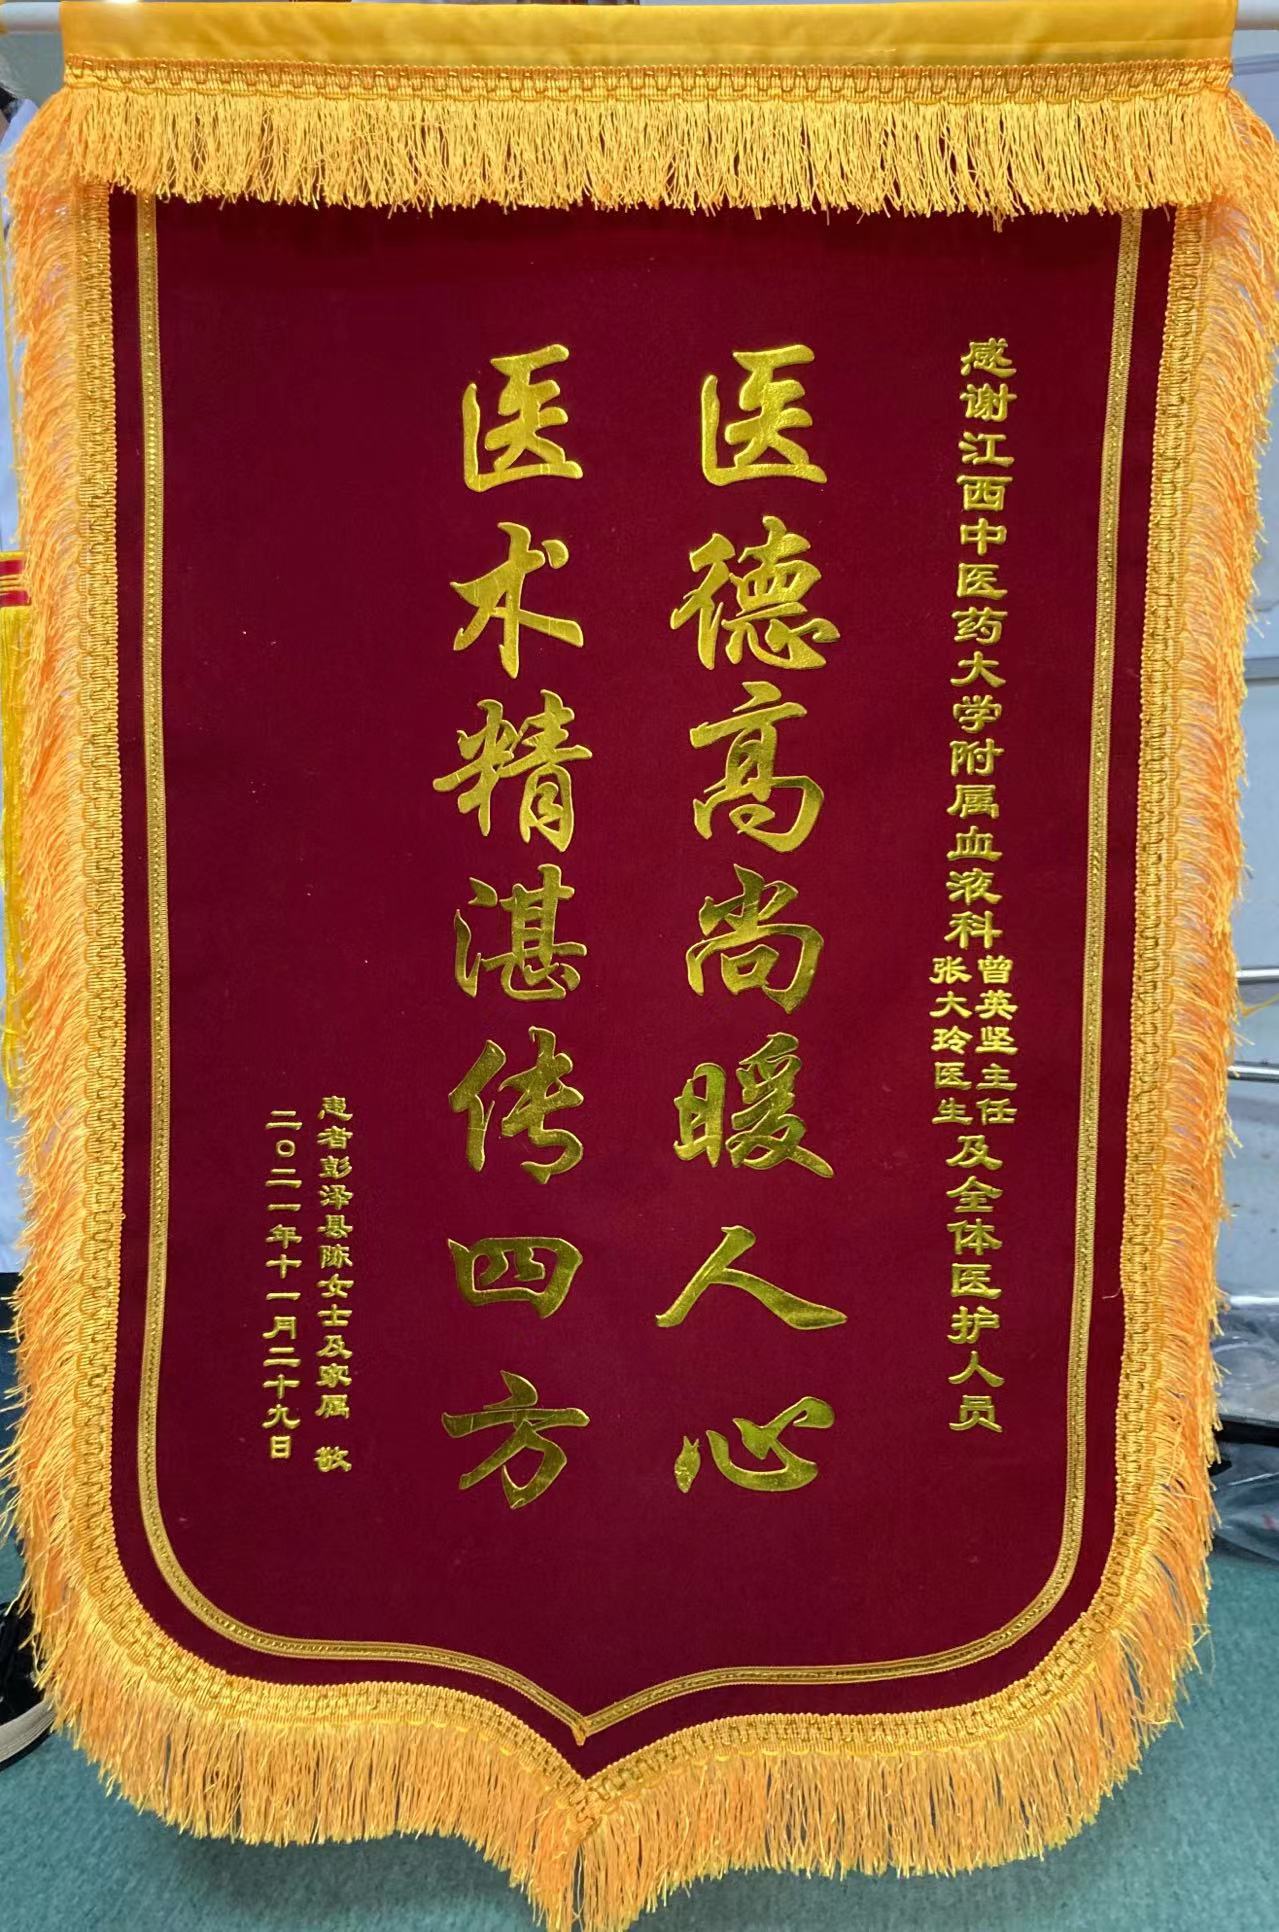 感谢江西中医药大学附属血液科曾英坚主任张大玲医生及全体医护人员
医德高尚暖人心
医术精湛传四方
患者彭泽县陈女士及家属 敬
二〇二一年十一月二十九日